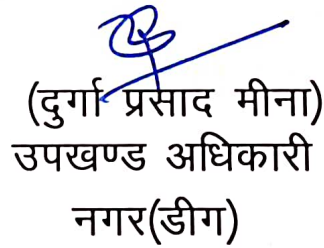 (दुर्गा प्रसाद मीना)
उपखण्ड अधिकारी
नगर(डीग)